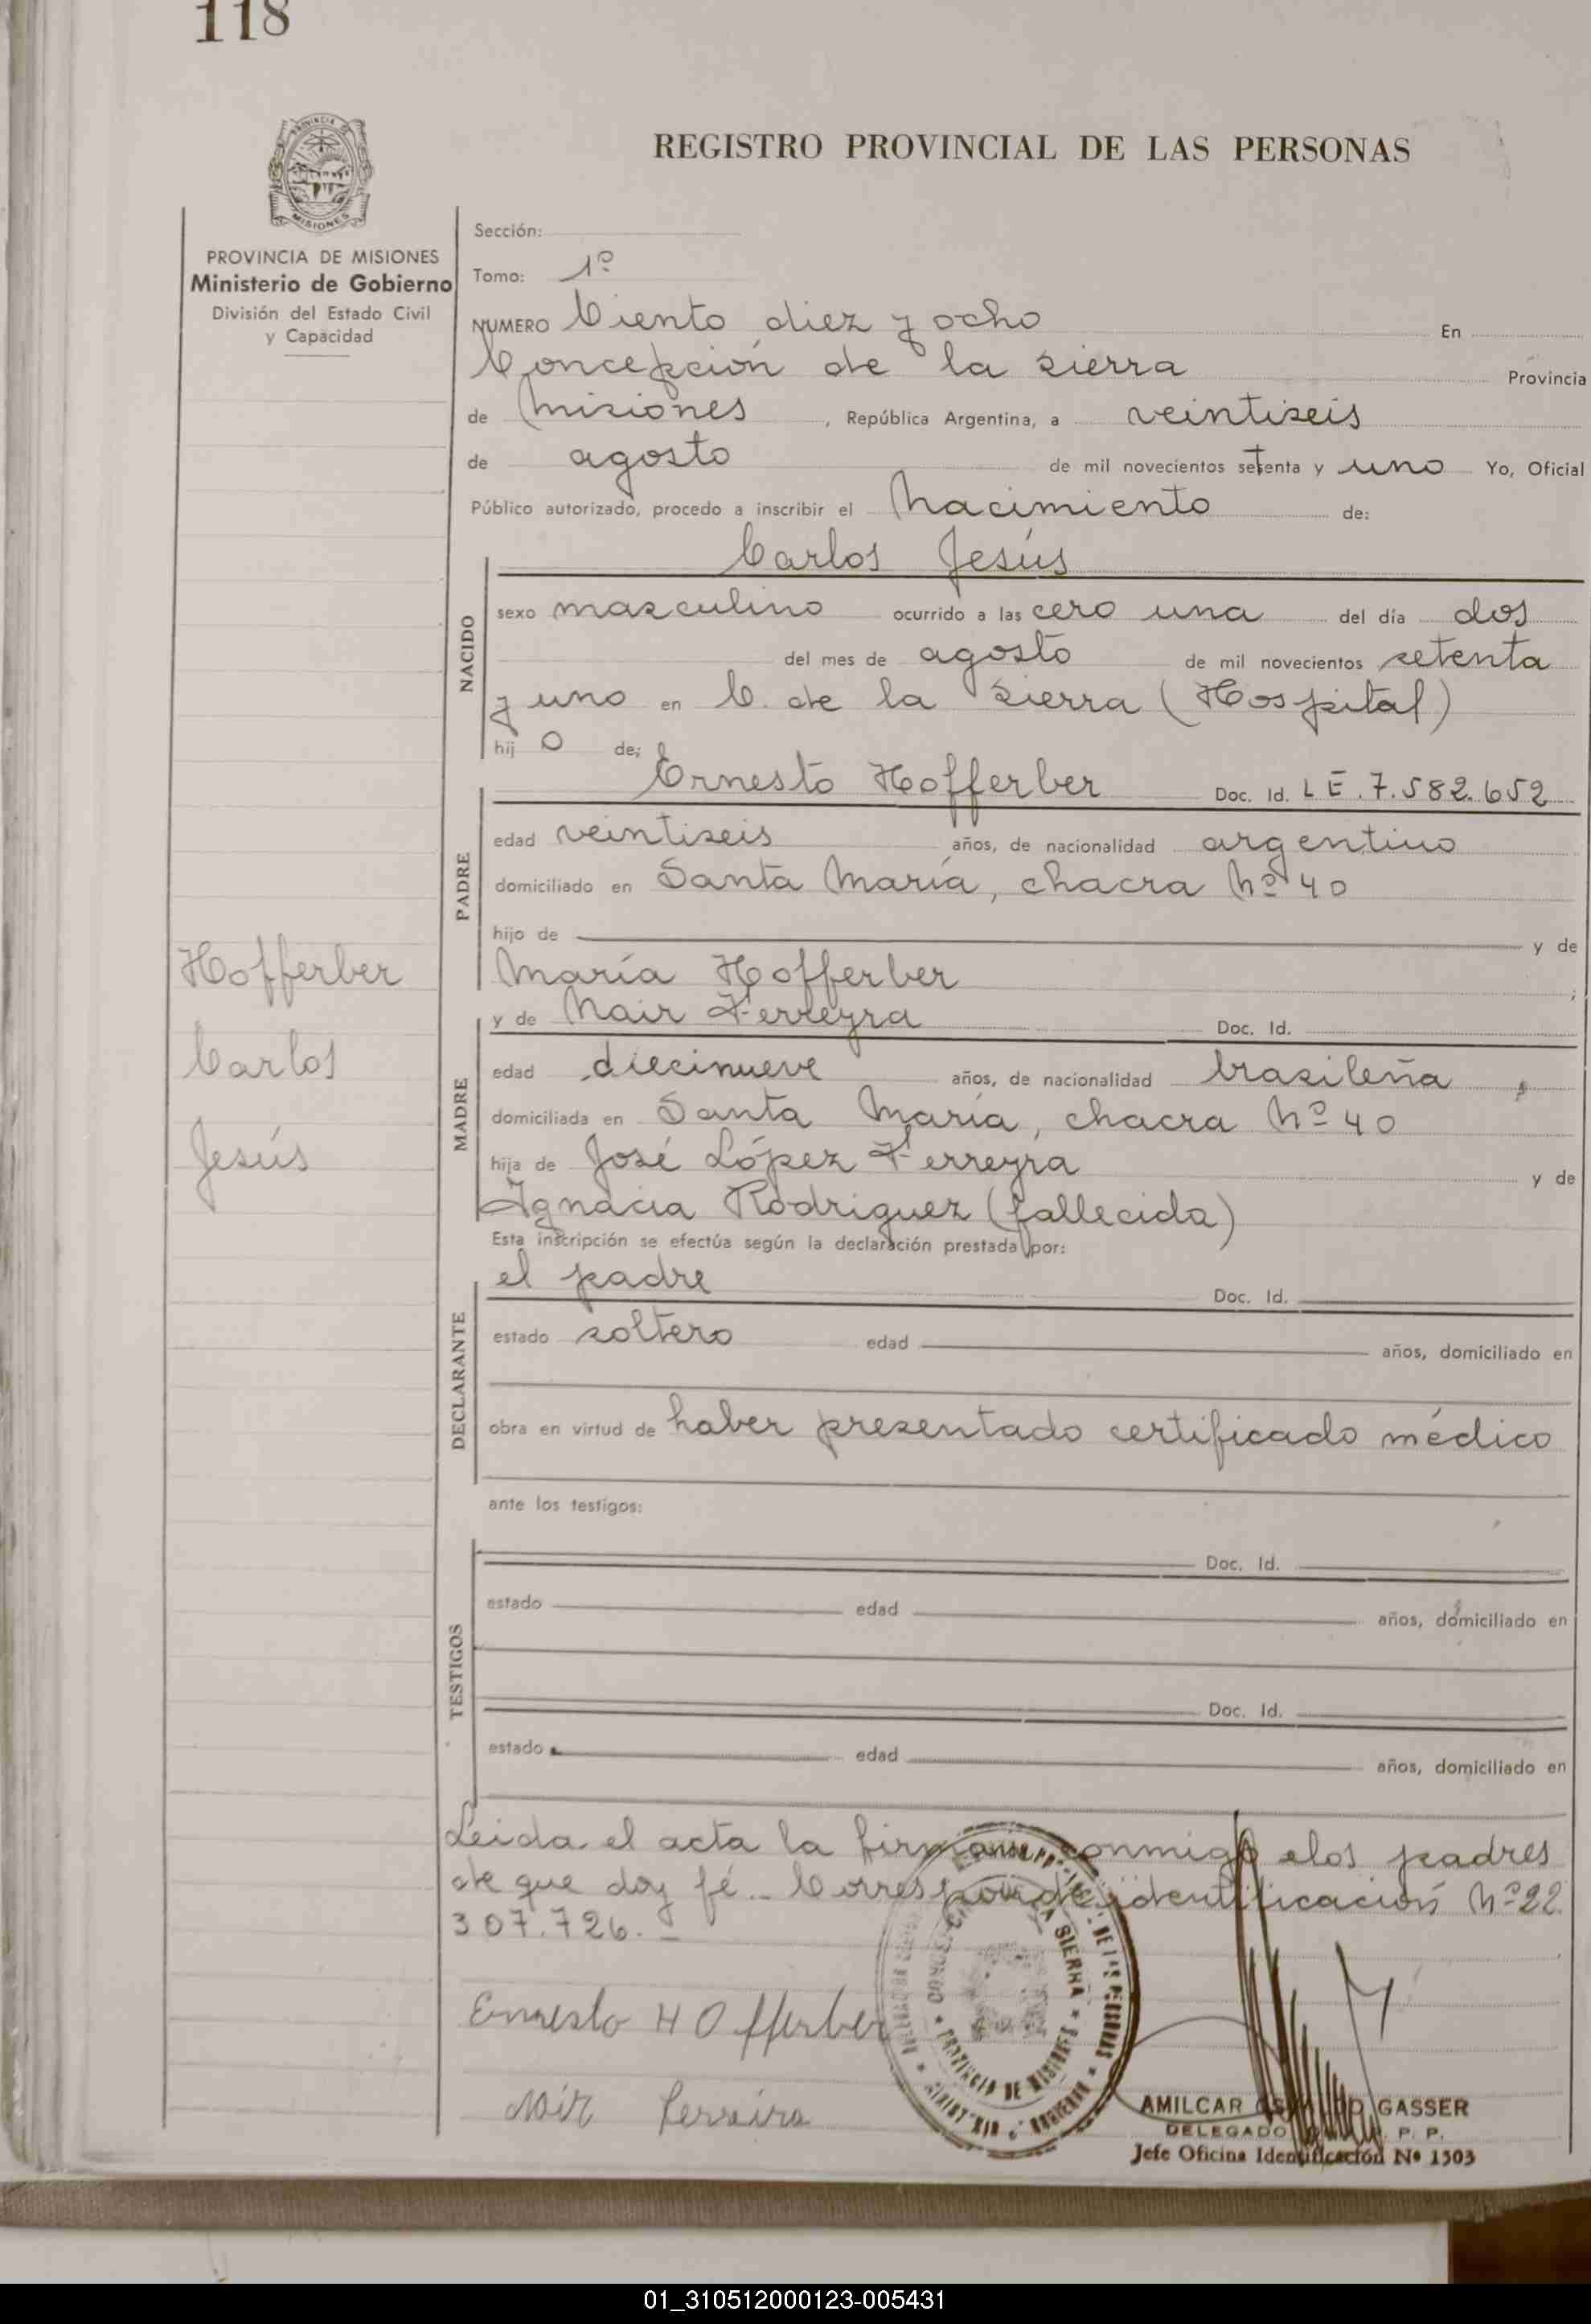 118
REGISTRO PROVINCIAL DE LAS PERSONAS
PROVINCIA DE MISIONES
Ministerio de Gobierno
División del Estado Civil
y Capacidad
Sección:
Tomo: 1º
NUMERO Ciento diez y ocho En
Concepción de la Sierra Provincia
de Misiones, República Argentina, a veintiseis
de agosto de mil novecientos setenta y uno Yo, Oficial
Público autorizado, procedo a inscribir el Nacimiento de:
Carlos Jesús
NACIDO
sexo masculino ocurrido a las cero una del día dos
del mes de agosto de mil novecientos setenta
y uno en C. de la Sierra (Hospital)
hij o de;
PADRE
Ernesto Hofferber Doc. Id. LE.7.582.652
edad veintiseis años, de nacionalidad argentino
domiciliado en Santa María, chacra Nº 40
hijo de y de
María Hofferber ;
Hofferber
Carlos
Jesús
MADRE
y de Nair Ferreyra Doc. Id.
edad diecinueve años, de nacionalidad brasileña
domiciliada en Santa María, chacra Nº 40
hija de José López Ferreyra y de
Ignacia Rodriguez (fallecida)
Esta inscripción se efectúa según la declaración prestada por:
DECLARANTE
el padre Doc. Id.
estado soltero edad años, domiciliado en
obra en virtud de haber presentado certificado médico
ante los testigos:
TESTIGOS
Doc. Id.
estado edad años, domiciliado en
Doc. Id.
estado edad años, domiciliado en
Leida el acta la firman conmigo los padres
de que doy fé.. Corresponde identificación Nº 22
307.726.-
Ernesto HOfferber
Nair Ferreira
SIERRA
PROVINCIA DE MISIONES
AMILCAR GASSER
DELEGADO P. P.
Jefe Oficina Identificación Nº 1303
01_310512000123-005431